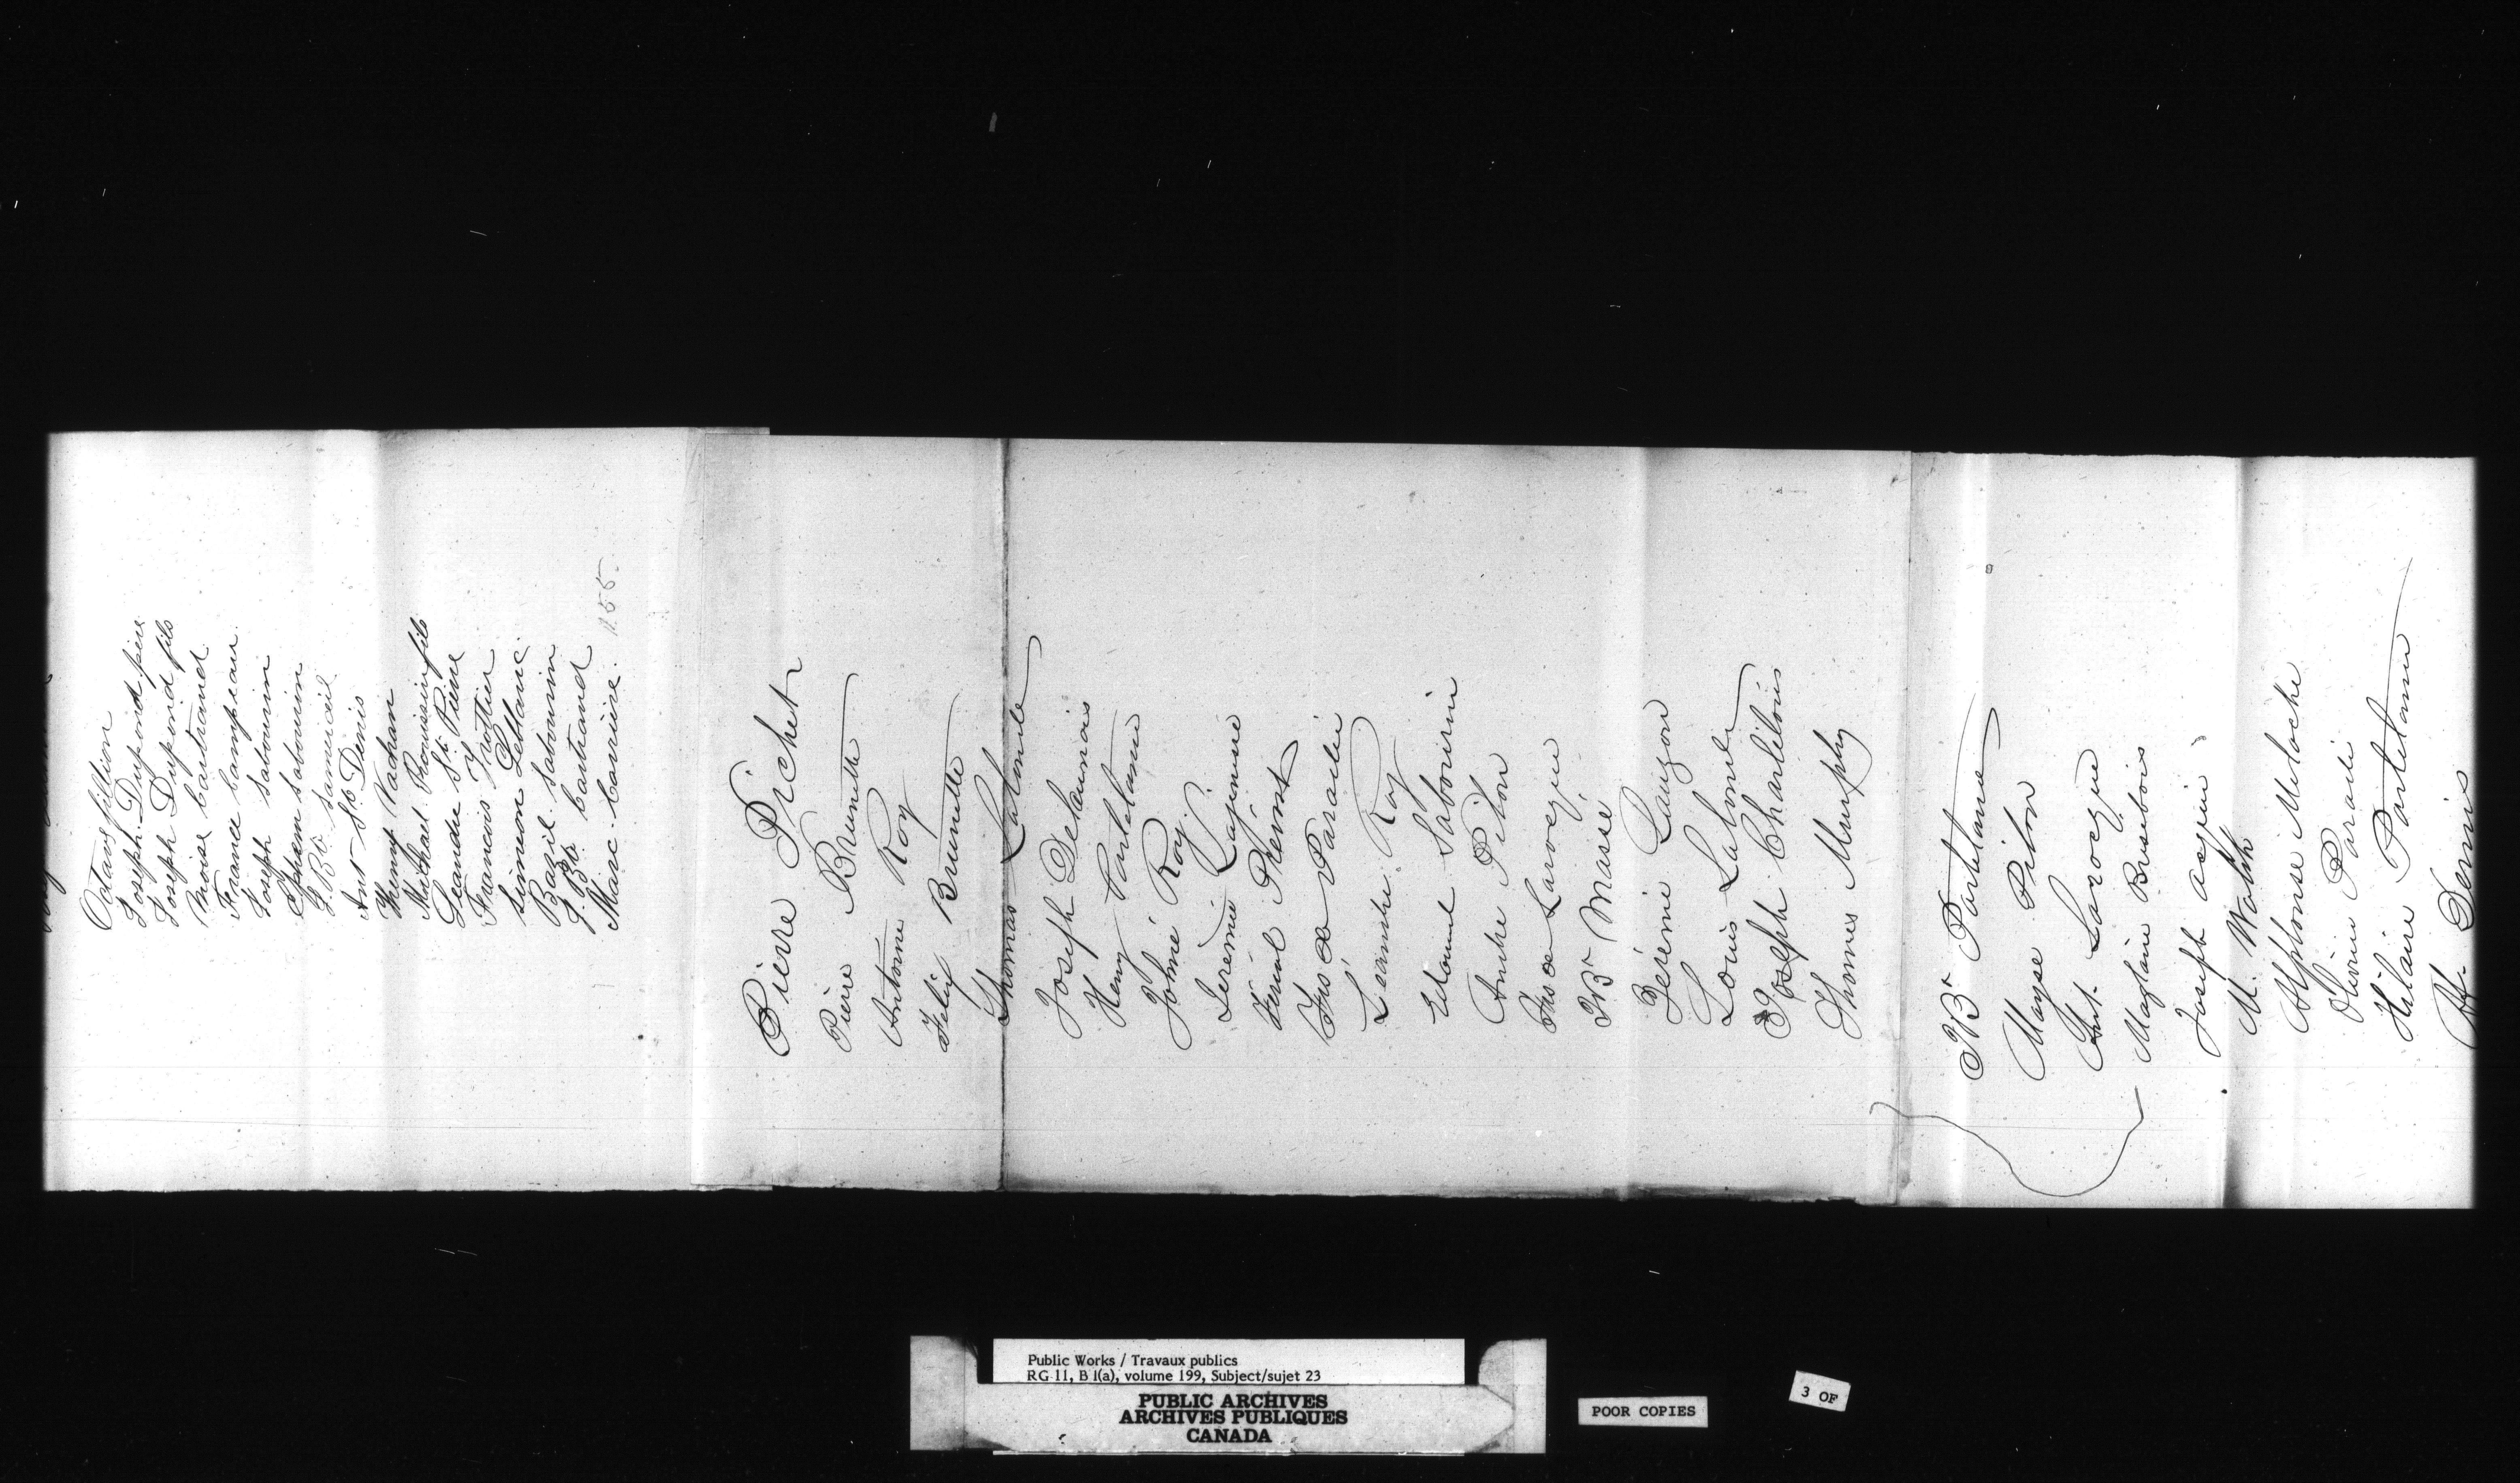 Octave fillion
Joseph Dupond père
Joseph Dupond fils
Moise bastrand
France campeau
Joseph sabourin
Ephrem sabourin
J. Bte
Ant St Denis
Henry Vachan
Michael Roussin fils
Leandre St. Pierre
Francois Trottier
Simeon Leblanc
Bazil Sabourin
J. Bte. bastrand
Marc carrière. 11.55.
Pierre Pichet
Pierre Brunette
Antoine Roy
Felix Brunette
Thomas Lalonde
Joseph Delaunais
Henry Portelance
Tolmé Roy.
Jeremie Lajeunie
Feriol Prévost
Frs de Paradis
Léandre Roy
Edouard Sabourin
Andre Pilon
Frs de Larocque
Bte Massé
Zérémi Lauzon
Louis Lalonde
Joseph Charlebois
Thomas Murphy
Bte Portelance
Mayse Pilon
Ant. Larocque
Maglaire Brisebois
Joseph asquin
M. Walsh
Alphonse Meloche
Olivier Paradi
Hilaire Portelance
Denis
Public Works / Travaux publics
RG 11, B 1(a), volume 199, Subject/sujet 23
PUBLIC ARCHIVES
ARCHIVES PUBLIQUES
CANADA
POOR COPIES
3 OF